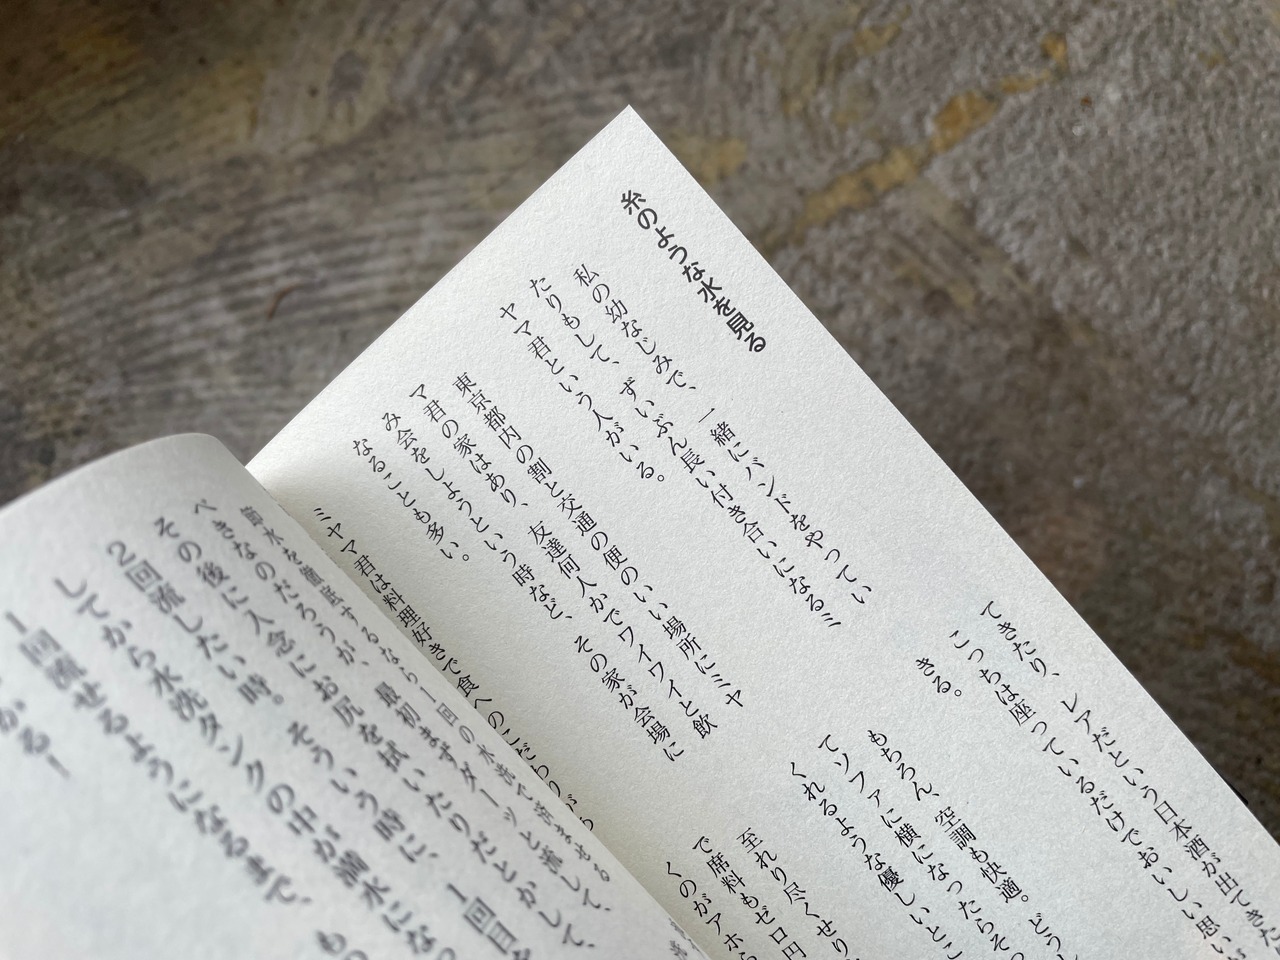 糸のような水を見る
私の幼なじみで、一緒にバンドをやってい
たりもして、ずいぶん長い付き合いになるミ
ヤマ君という人がいる。
東京都内の割と交通の便のいい場所にミヤ
マ君の家はあり、友達何人かでワイワイと飲
み会をしようという時など、その家が会場に
なることも多い。
ミヤマ君は料理好きで食へのこだわりが
てきたり、レアだという日本酒が出てきた
こっちは座っているだけでおいしい思い
きる。
もちろん、空調も快適。どう
てソファに横になったらそ
くれるような優しいとこ
至れり尽くせり
で席料もゼロ円
くのがアホら
節水を徹底するなら1回の水洗で済ませる
べきなのだろうが、最初まずダーッと流して、
その後に入念にお尻を拭いたりだとかして、
2回流したい時。そういう時に、1回目を
してから水洗タンクの中が満水になっ
1回流せるようになるまで、もの
かる！